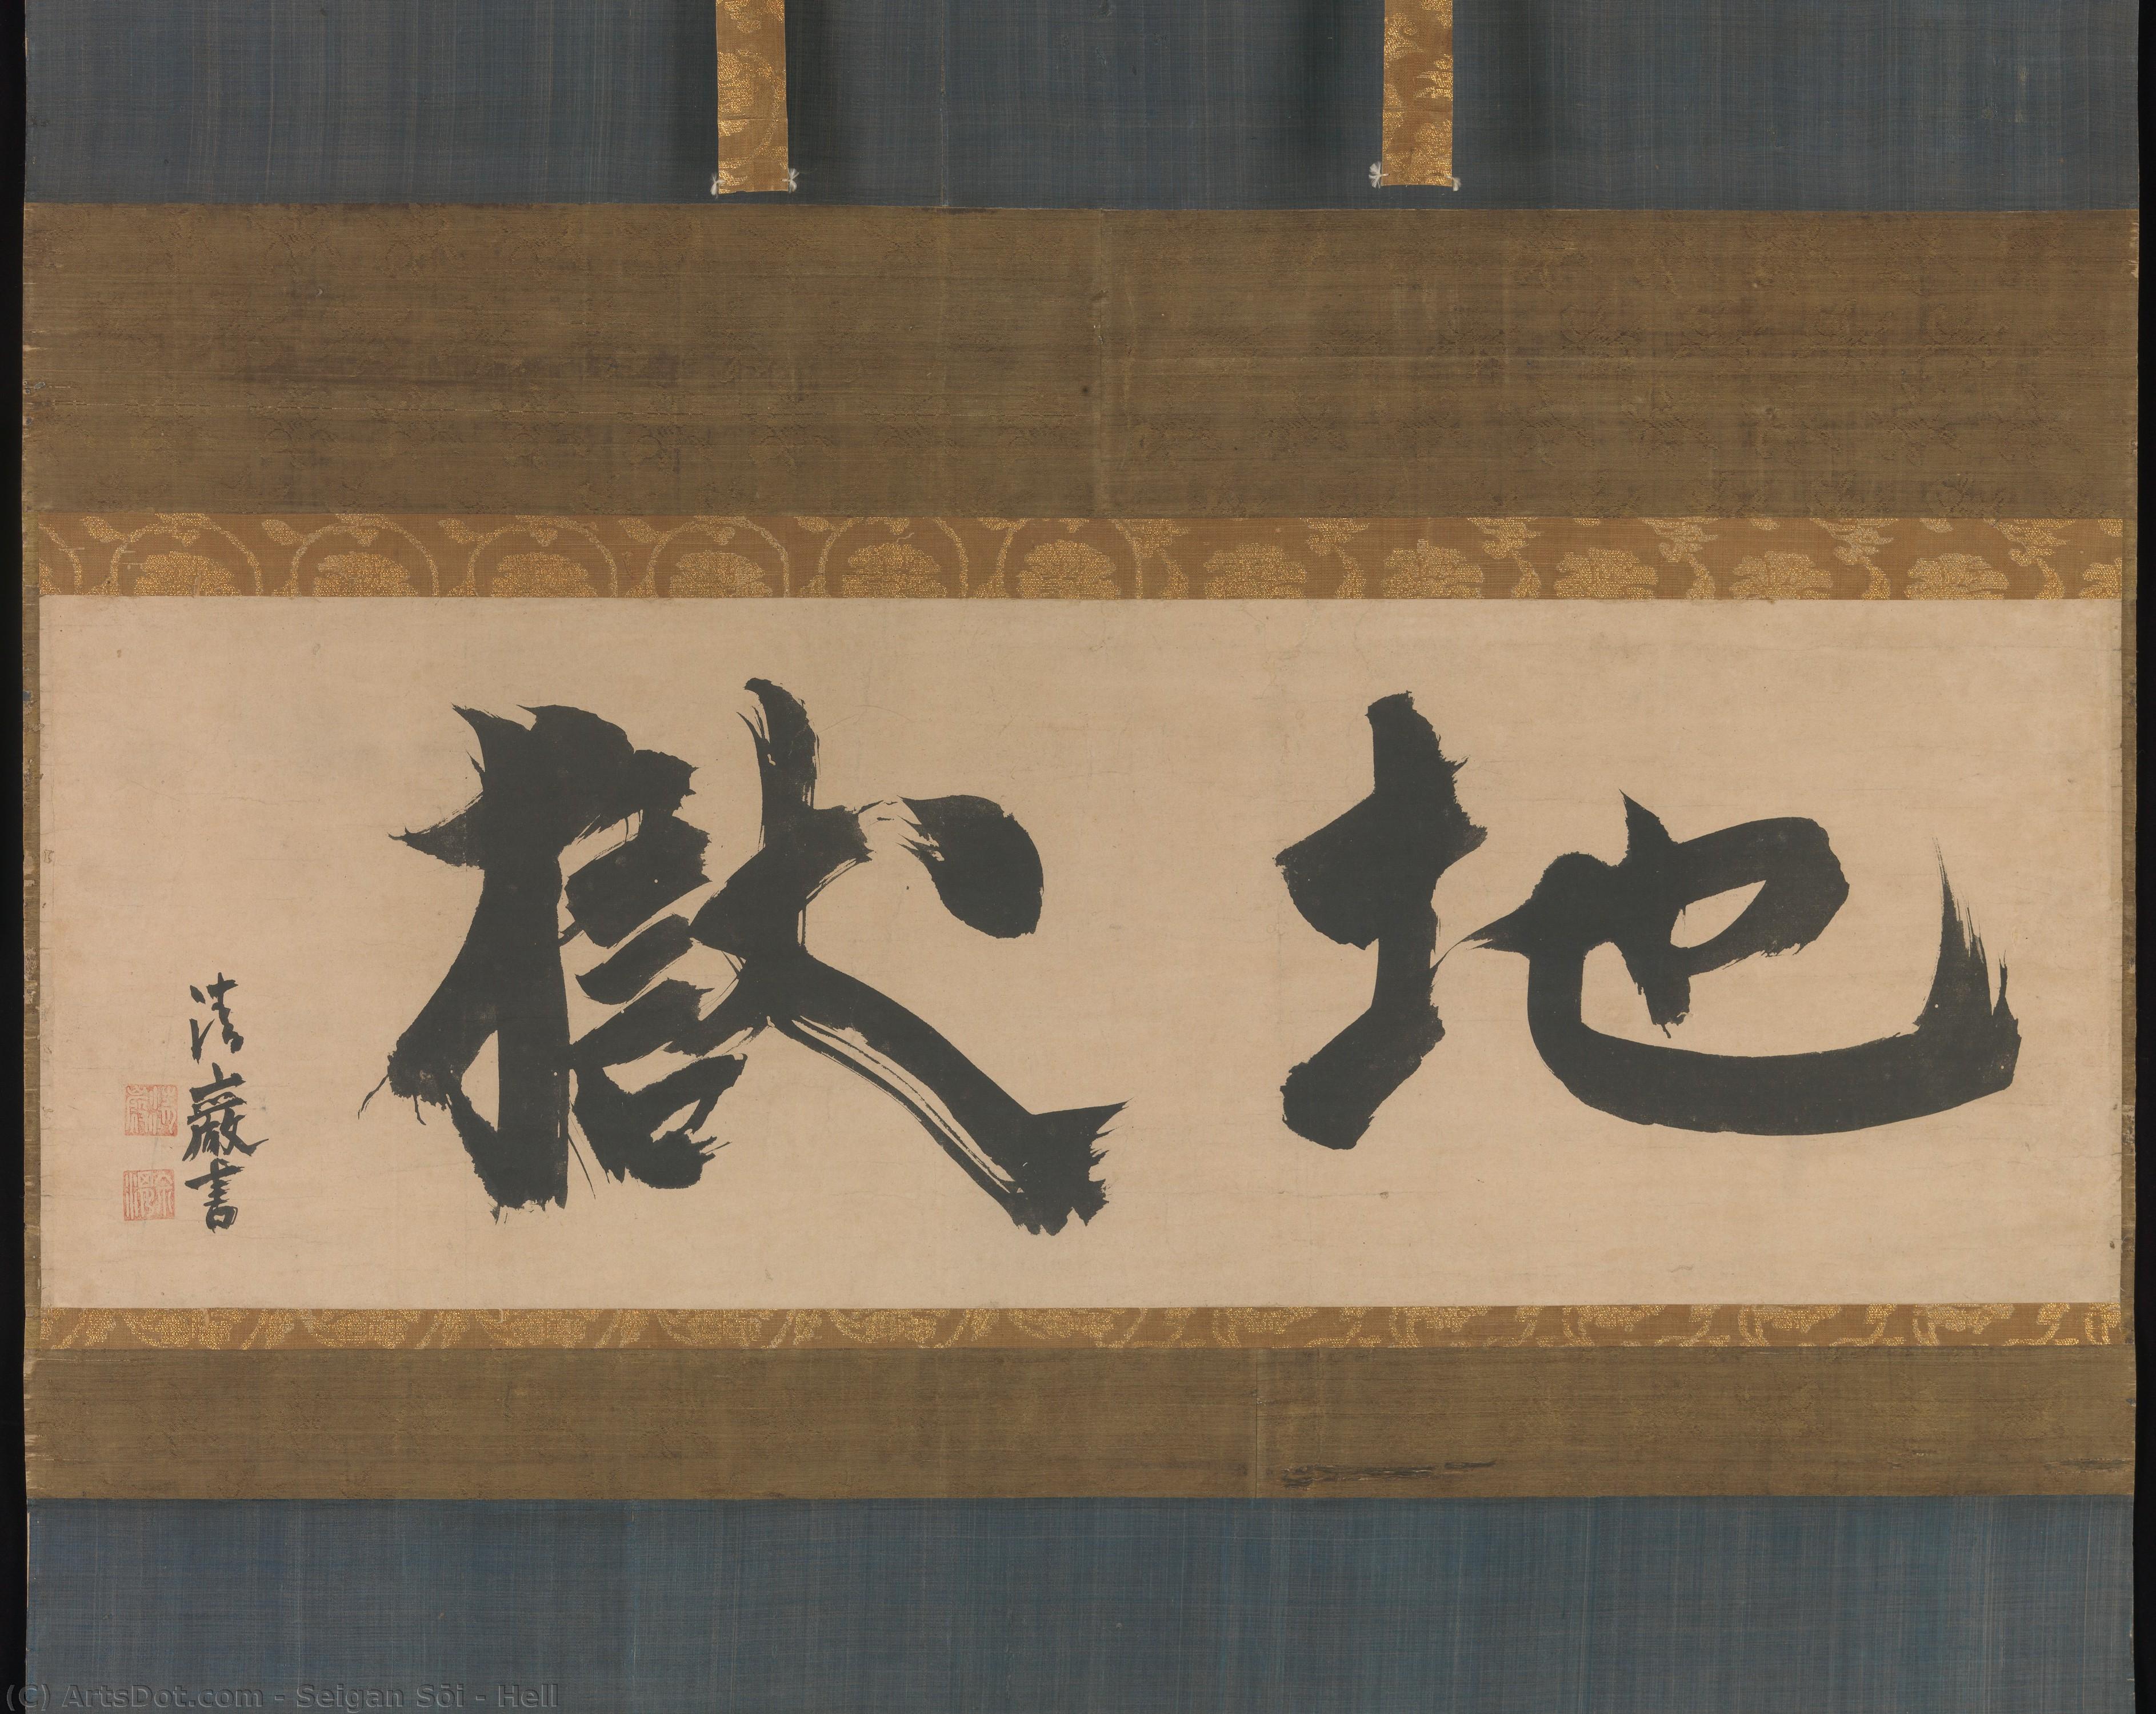 地獄
清巖書
(C) ArtsDot.com - Seigan Sōi - Hell